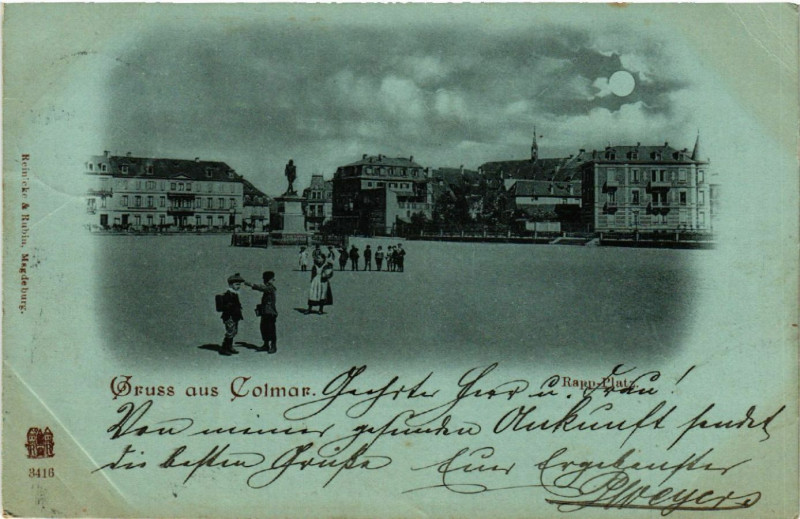 Reinicke & Rubin, Magdeburg.
Gruss aus Colmar.
Rapp-Platz.
Geehrter Herr u. Frau!
Von meiner gesunden Ankunft sendet
die besten Grüße Euer Ergebenster
PWeyers
3416